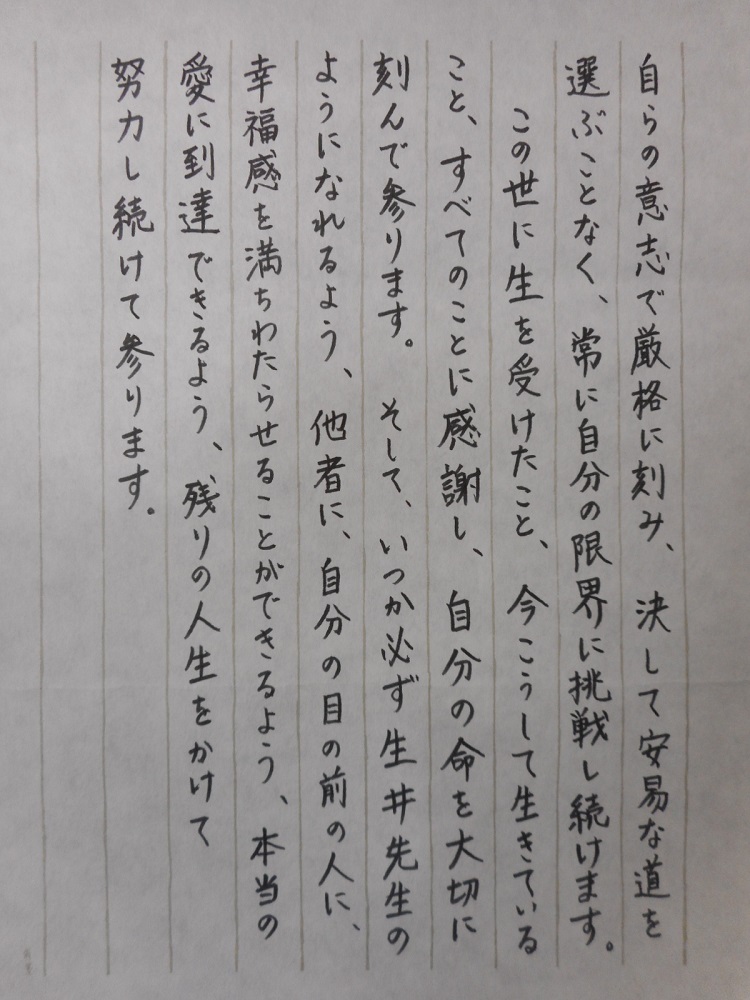 自らの意志で厳格に刻み、決して安易な道を
選ぶことなく、常に自分の限界に挑戦し続けます。
この世に生を受けたこと、今こうして生きている
こと、すべてのことに感謝し、自分の命を大切に
刻んで参ります。そして、いつか必ず生井先生の
ようになれるよう、他者に、自分の目の前の人に、
幸福感を満ちわたらせることができるよう、本当の
愛に到達できるよう、残りの人生をかけて
努力し続けて参ります。